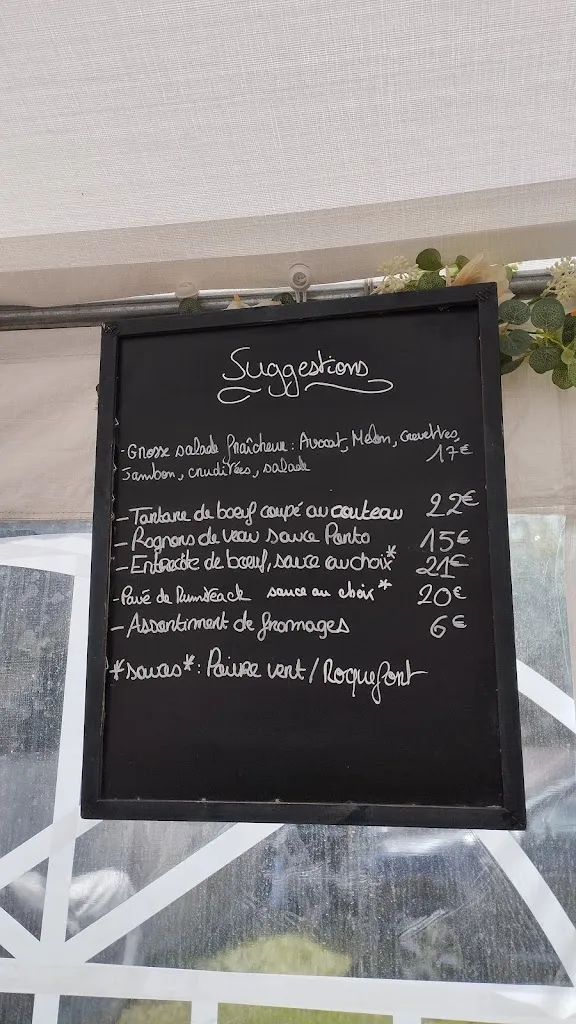 Suggestions
- Grosse salade fraîcheur : Avocat, Melon, Crevettes,
Jambon, crudités, salade 17€
- Tartare de boeuf coupé au couteau 22€
- Rognons de veau sauce Porto 15€
- Entrecôte de boeuf, sauce au choix* 21€
- Pavé de Rumsteack sauce au choix* 20€
- Assortiment de fromages 6€
*sauces* : Poivre vert / Roquefort